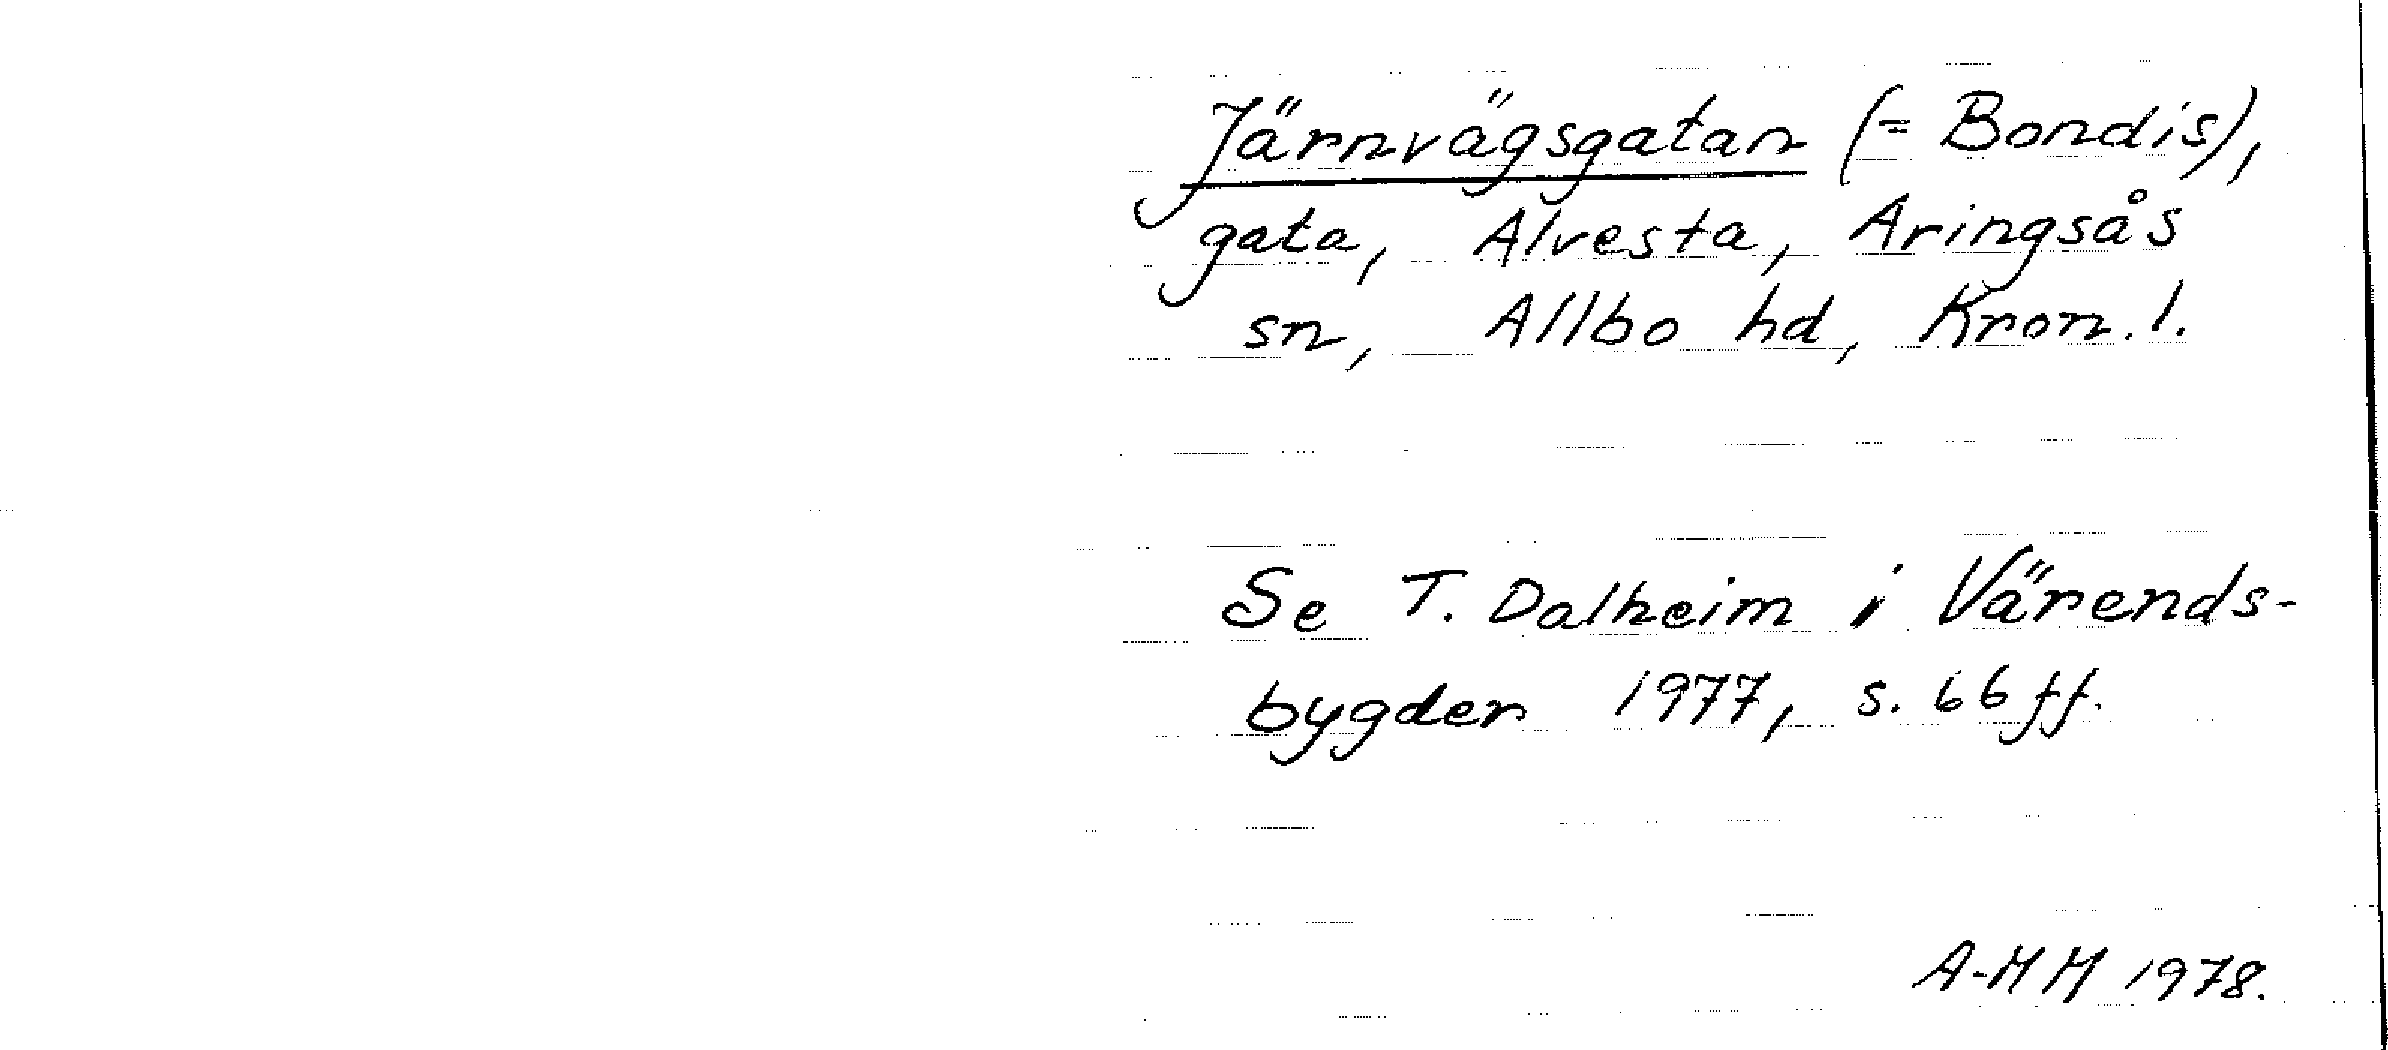 Järnvägsgatan (= Bondis),
gata, Alvesta, Aringsås
sn, Allbo hd, Kron. l.
Se T. Dalheim i Värends-
bygder 1977, s. 66 ff.
A-MM 1978.